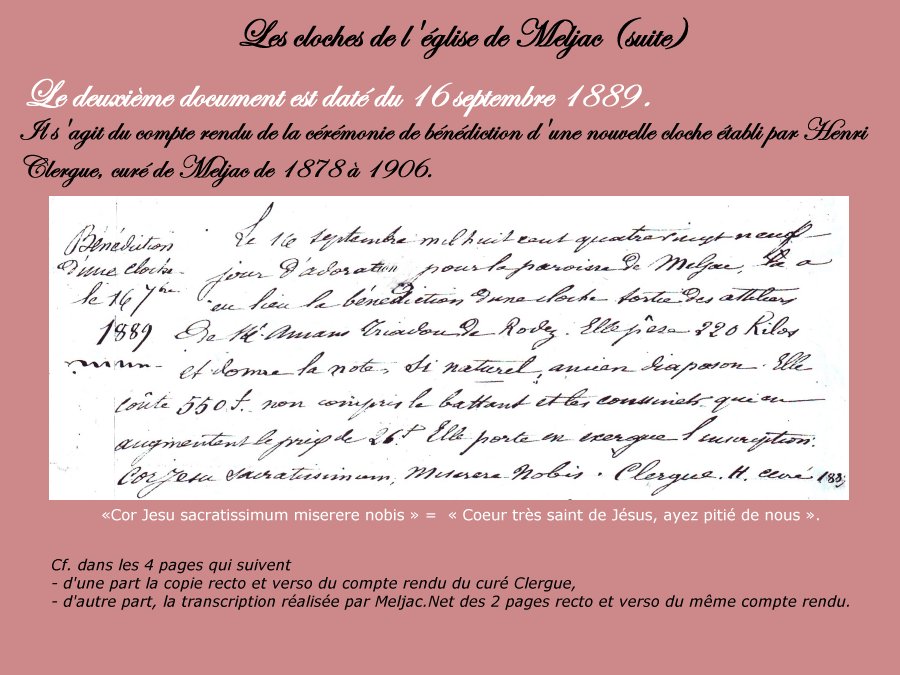 Les cloches de l'église de Meljac (suite)
Le deuxième document est daté du 16 septembre 1889.
Il s'agit du compte rendu de la cérémonie de bénédiction d'une nouvelle cloche établi par Henri
Clergue, curé de Meljac de 1878 à 1906.
Bénédiction
d'une cloche
le 16 7bre
1889
Le 16 septembre mil huit cent quatre vingt neuf
jour d'adoration pour la paroisse de Meljac, a
eu lieu la bénédiction d'une cloche sortie des atteliers
de Mr Amans Triadou de Rodez. Elle pèse 220 kilos
et donne la note, Si naturel, ancien diapason. Elle
coûte 550 f. non compris le battant et les coussinets qui en
augmentent le prix de 26 f Elle porte en exergue l'inscription:
Cor Jesu Sacratissimum, Miserere Nobis. Clergue. H. curé 1889
«Cor Jesu sacratissimum miserere nobis » = « Coeur très saint de Jésus, ayez pitié de nous ».
Cf. dans les 4 pages qui suivent
- d'une part la copie recto et verso du compte rendu du curé Clergue,
- d'autre part, la transcription réalisée par Meljac.Net des 2 pages recto et verso du même compte rendu.